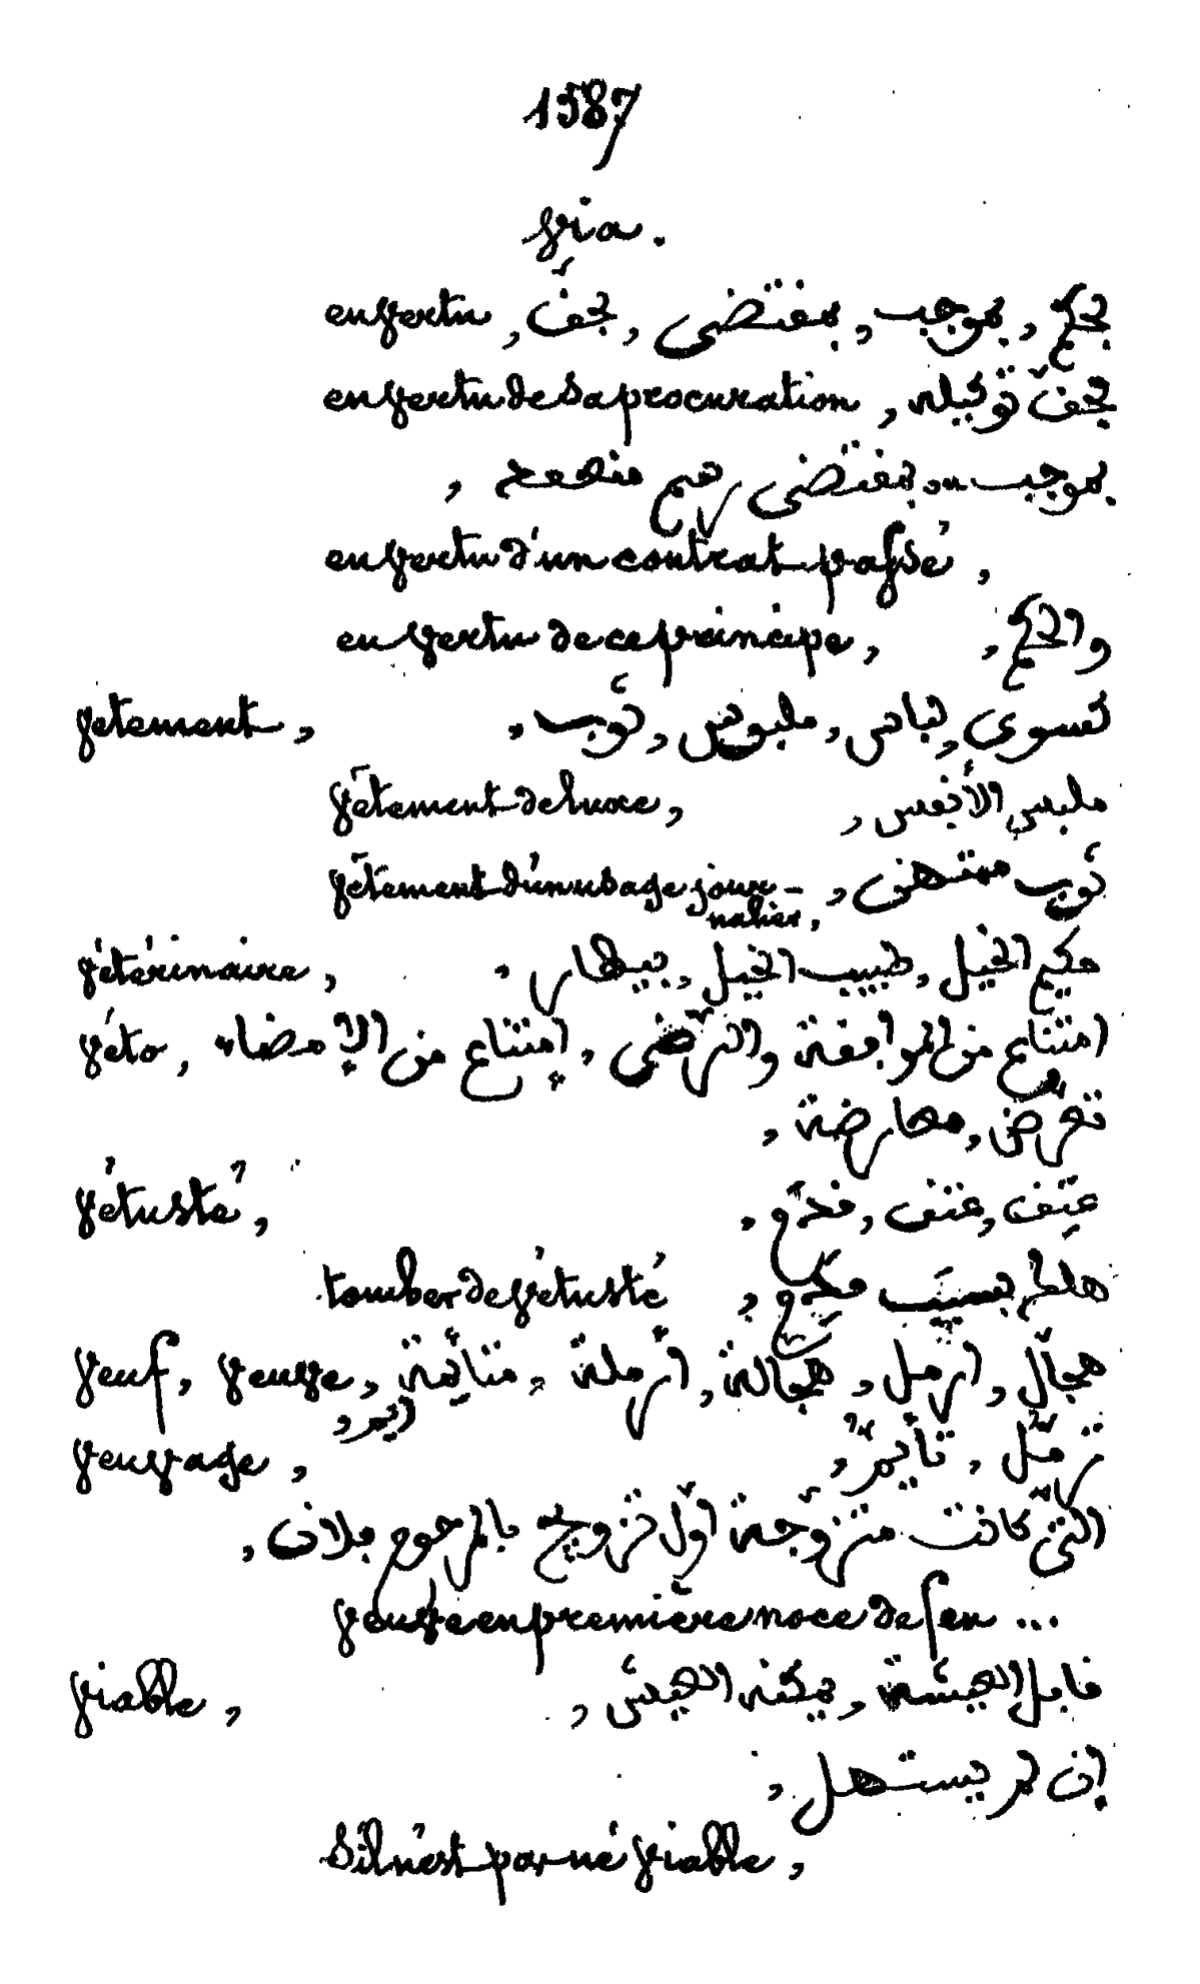 1587
via.
en vertu, بحقّ, بمقتضى, بموجب, بحكم
en vertu de sa procuration, بحقّ توكيله
بموجب او بمقتضى رسم منعقد,
en vertu d'un contrat passé,
en vertu de ce principe, والحكم,
vetement, كسوى, لباس, ملبوس, ثوب,
vêtement de luxe, ملبس الأنفس,
vêtement d'un usage jour-nalier, ثوب ممتهن,
véterinaire, حكيم الخيل, طبيب الخيل, بيطار,
véto, امتناع من الموافقة والترضى, إمتناع من الإمضاء
تعرّض, معارضة,
vétusté, عتق, عتق, قدم,
tomber de vétusté هلك بسبب قدم,
veuf, veuve, هجّال, ارمل, هجّالة, أرملة, متأيّمة, ايم,
veuvage, ترمّل, تأيّم,
التى كانت متزوّجة اوّل تزويج بالمرحوم فلان,
veuve en première noce de feu ...
viable, قابل العيشة, يمكنه العيش,
إن لم يستهل,
S'il n'est pas né viable,